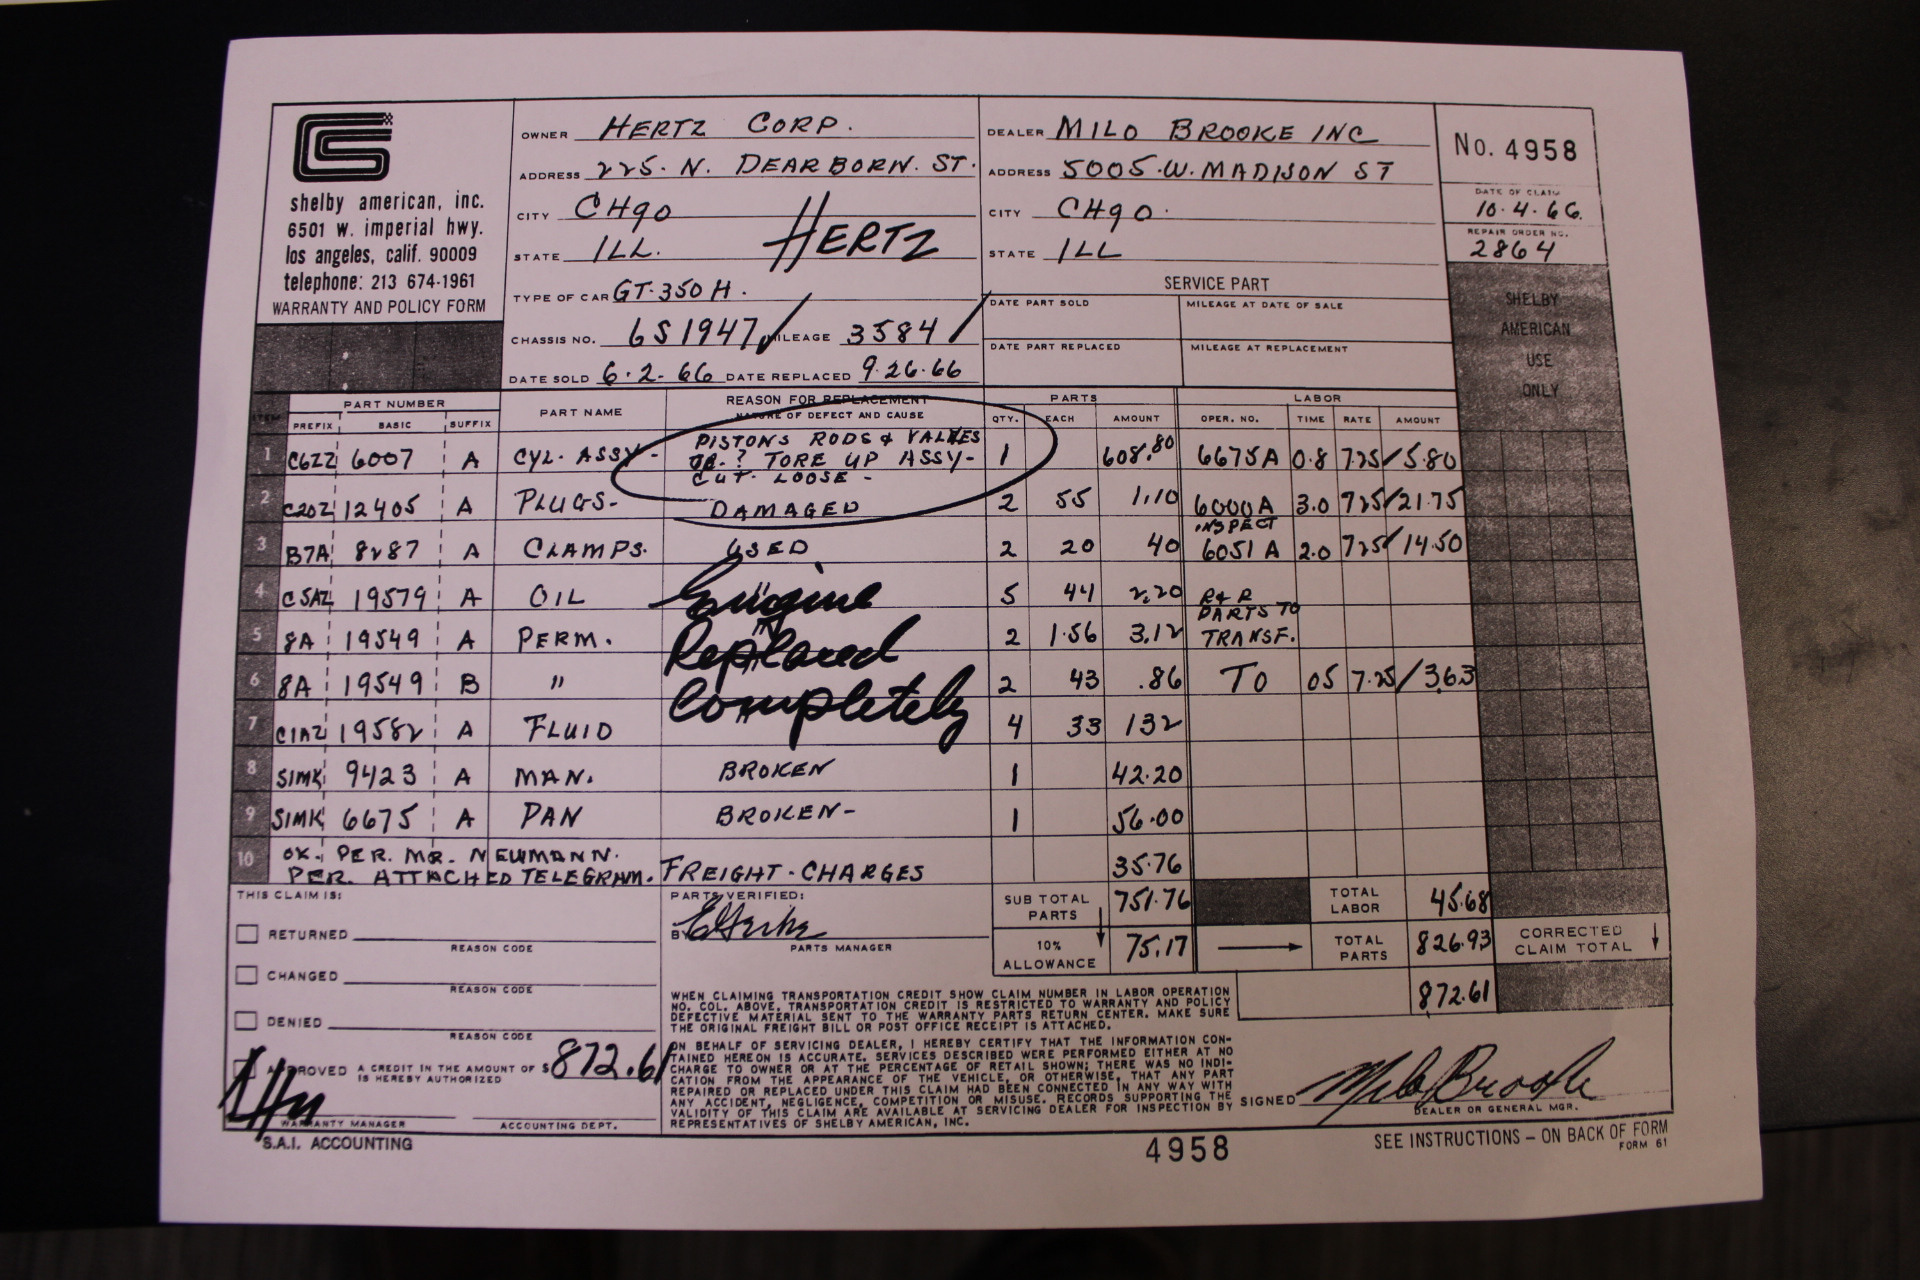 shelby american, inc.
6501 W. imperial hwy.
los angeles, calif. 90009
telephone: 213 674-1961
WARRANTY AND POLICY FORM
OWNER HERTZ CORP.
ADDRESS 225. N. DEARBORN. ST.
CITY CHgo
STATE ILL. HERTZ
TYPE OF CAR GT-350 H.
CHASSIS NO. 6S1947 MILEAGE 3584
DATE SOLD 6-2-66 DATE REPLACED 9-26-66
DEALER MILO BROOKE INC
ADDRESS 5005.W. MADISON ST
CITY CHgo.
STATE ILL
SERVICE PART
DATE PART SOLD MILEAGE AT DATE OF SALE
DATE PART REPLACED MILEAGE AT REPLACEMENT
No. 4958
DATE OF CLAIM
10-4-66.
REPAIR ORDER NO.
2864
SHELBY
AMERICAN
USE
ONLY
ITEM PART NUMBER PART NAME REASON FOR REPLACEMENT PARTS LABOR
PREFIX BASIC SUFFIX NATURE OF DEFECT AND CAUSE QTY. EACH AMOUNT OPER. NO. TIME RATE AMOUNT
1 C6ZZ 6007 A CYL. ASSY- PISTONS RODS & VALVES 1 608.80 6675A 0.8 7.25/5.80
? TORE UP ASSY-
CUT. LOOSE -
2 C2OZ 12405 A PLUGS- DAMAGED 2 55 1.10 6000A 3.0 725/21.75
INSPECT
3 B7A 8287 A CLAMPS. USED 2 20 40 6051A 2.0 725/14.50
4 C5AZ 19579 A OIL " 5 44 2.20 R & R
PARTS TO
5 8A 19549 A PERM. " 2 1.56 3.12 TRANSF.
6 8A 19549 B " 2 43 .86 TO 05 7.25/3.63
7 C1AZ 19582 A FLUID " 4 33 132
Engine
Replaced
Completely
8 S1MK 9423 A MAN. BROKEN 1 42.20
9 S1MK 6675 A PAN BROKEN- 1 56.00
10 OK. PER. MR. NEUMANN.
PER. ATTACHED TELEGRAM. FREIGHT-CHARGES 35.76
THIS CLAIM IS:
RETURNED
REASON CODE
CHANGED
REASON CODE
DENIED
REASON CODE
APPROVED A CREDIT IN THE AMOUNT OF $872.61
IS HEREBY AUTHORIZED
WARRANTY MANAGER ACCOUNTING DEPT.
S.A.I. ACCOUNTING
PARTS VERIFIED:
BY
PARTS MANAGER
SUB TOTAL PARTS 751.76 TOTAL LABOR 45.68
10% ALLOWANCE 75.17 TOTAL PARTS 826.93 CORRECTED CLAIM TOTAL
872.61
WHEN CLAIMING TRANSPORTATION CREDIT SHOW CLAIM NUMBER IN LABOR OPERATION
NO. COL. ABOVE. TRANSPORTATION CREDIT IS RESTRICTED TO WARRANTY AND POLICY
DEFECTIVE MATERIAL SENT TO THE WARRANTY PARTS RETURN CENTER. MAKE SURE
THE ORIGINAL FREIGHT BILL OR POST OFFICE RECEIPT IS ATTACHED.
ON BEHALF OF SERVICING DEALER, I HEREBY CERTIFY THAT THE INFORMATION CON-
TAINED HEREON IS ACCURATE. SERVICES DESCRIBED WERE PERFORMED EITHER AT NO
CHARGE TO OWNER OR AT THE PERCENTAGE OF RETAIL SHOWN; THERE WAS NO INDI-
CATION FROM THE APPEARANCE OF THE VEHICLE, OR OTHERWISE, THAT ANY PART
REPAIRED OR REPLACED UNDER THIS CLAIM HAD BEEN CONNECTED IN ANY WAY WITH
ANY ACCIDENT, NEGLIGENCE, COMPETITION OR MISUSE. RECORDS SUPPORTING THE
VALIDITY OF THIS CLAIM ARE AVAILABLE AT SERVICING DEALER FOR INSPECTION BY
REPRESENTATIVES OF SHELBY AMERICAN, INC.
SIGNED Milo Brooke
DEALER OR GENERAL MGR.
4958
SEE INSTRUCTIONS - ON BACK OF FORM
FORM 61